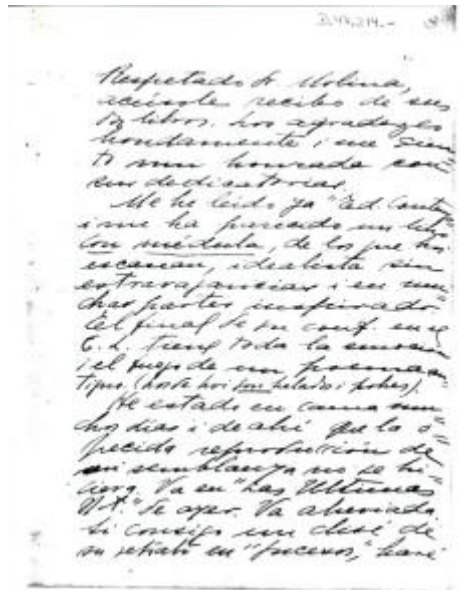 D.44,214.-
Respetado Sr Molina,
acúsole recibo de sus
libros. Los agradezco
hondamente i me sien-
to mui honrada con
sus dedicatorias.
Me he leido ya "Ed. Contem
i me ha parecido un libro
con médula, de los que hoi
escasean, idealista sin
extravagancias i en mu-
chas partes inspirado.
El final de su conf. en
tiene toda la emoción
i el fuego de un poema
(hasta hoi son helados i pobres).
He estado en cama mu-
chos dias i de ahí que la o-
frecida reproducción de
su semblanza no se hi-
ciera. Va en "Las Ultimas
N." de ayer. Va abreviada.
Si consigo un clisé de
su retrato en "Sucesos," haré